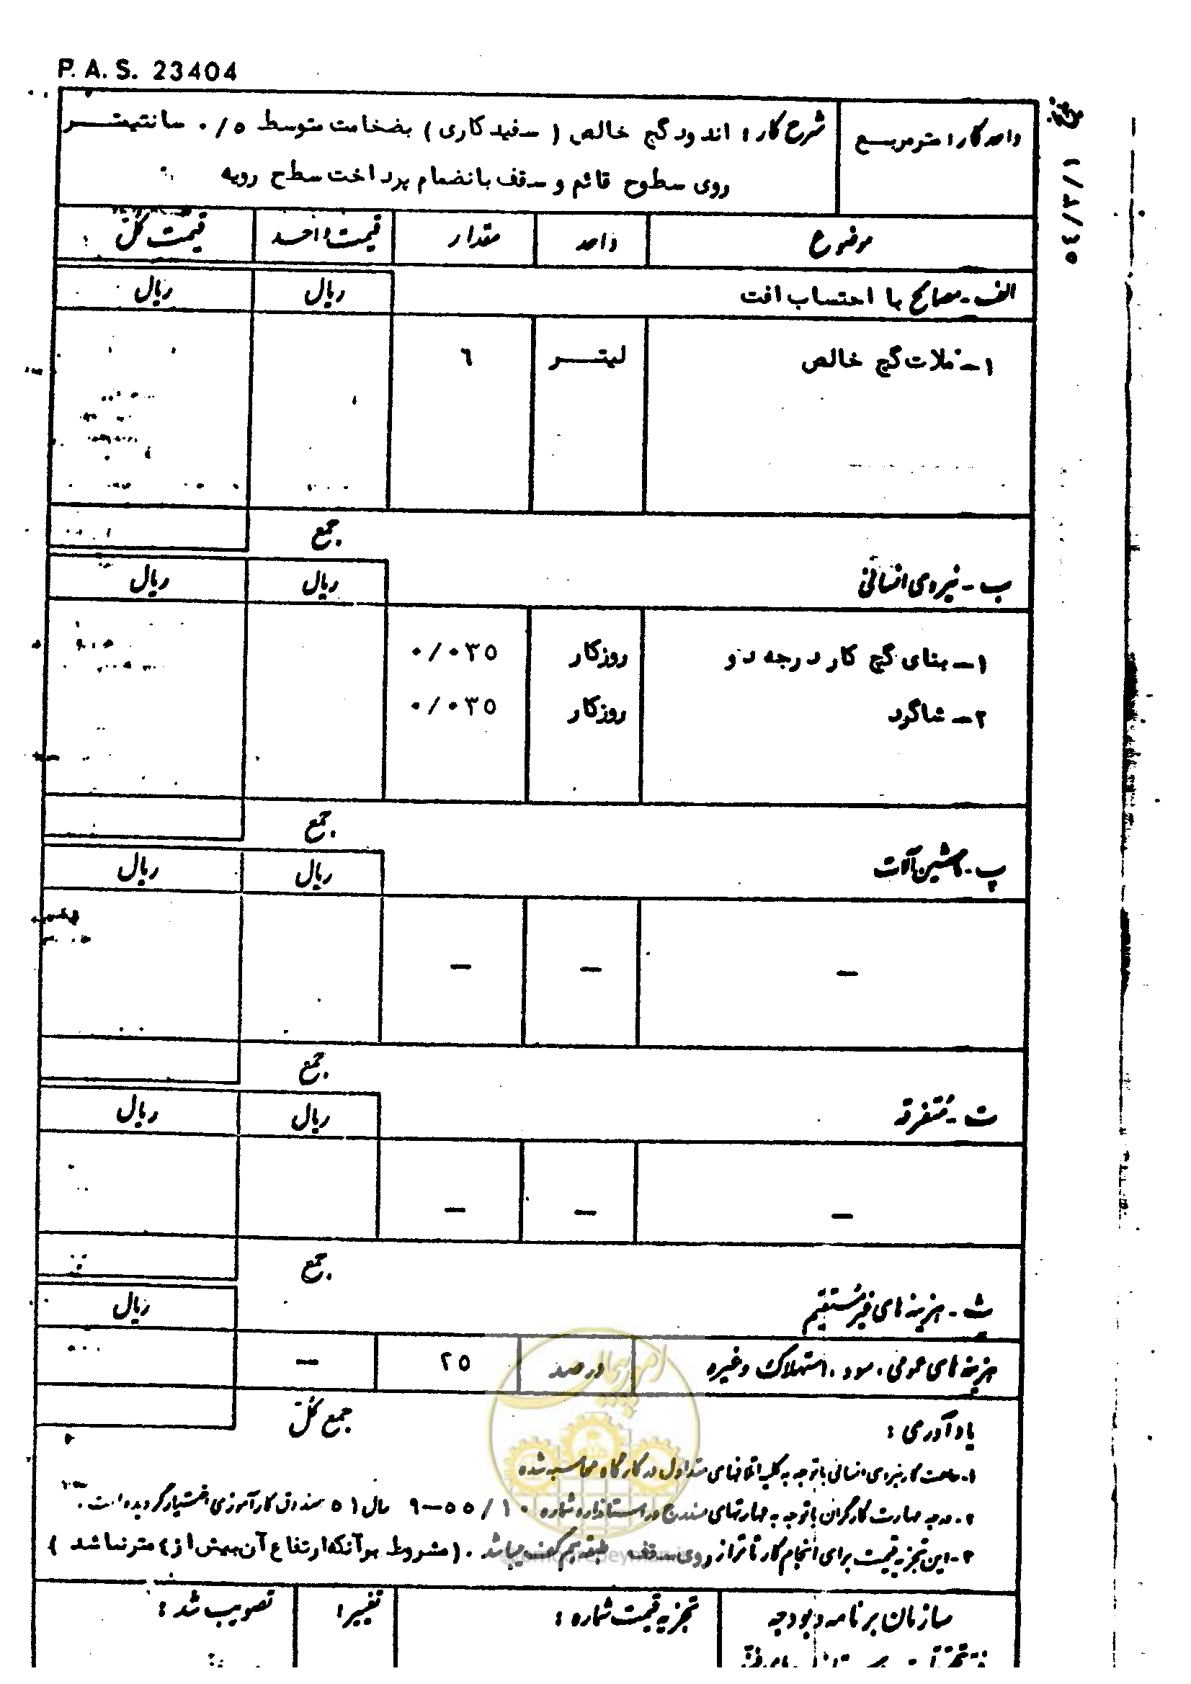 P. A. S. 23404
واحد کار: مترمربع
شرح کار: اندود گچ خالص (سفیدکاری) بضخامت متوسط ۰/۵ سانتیمتر
روی سطوح قائم و سقف بانضمام پرداخت سطح رویه
موضوع واحد مقدار قیمت واحد قیمت کل
الف - مصالح با احتساب افت ریال ریال
۱ - ملات گچ خالص لیتر ٦
جمع
ب - نیروی انسانی ریال ریال
۱ - بنای گچ کار درجه دو روزکار ۰/۰۳۵
۲ - شاگرد روزکار ۰/۰۳۵
جمع
پ - ماشین‌آلات ریال ریال
— — —
جمع
ت - متفرقه ریال ریال
— — —
جمع
ث - هزینه های غیرمستقیم ریال
هزینه های عمومی، سود، استهلاک وغیره درصد ۲۵ —
جمع کل
یادآوری:
۱ - ساعت کار نیروی انسانی با توجه به کلیه اتلافهای متداول در کارگاه محاسبه شده
۲ - درجه مهارت کارگران با توجه به مهارتهای مندرج در استاندارد شماره ۹-۵۵/۱۰ سال ۵۱ صندوق کارآموزی اختیار گردیده است.
۳ - این تجزیه قیمت برای انجام کار تا تراز روی سقف طبقه همکف میباشد. (مشروط برآنکه ارتفاع آن بیش از ٤ متر نباشد)
سازمان برنامه و بودجه تجزیه قیمت شماره: تغییر: تصویب شد: